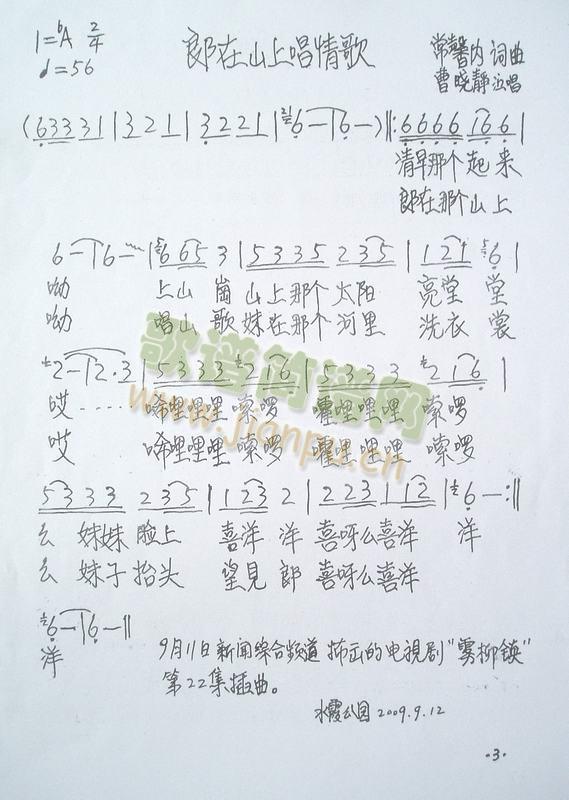 1=ᵇA 2/4
♩=56
郎在山上唱情歌
常馨内 词曲
曹晓静 泣唱
(6333 1 | 3 2 1 | 3 2 2 1 | 6 — | 6 —) ‖: 6 6 6 6 1 6 6 |
清早那个 起 来
郎在那个 山 上
6 — | 6 — | 6 65 3 | 5 3 3 5 2 3 5 | 1 2 1 6 |
呦 上山 崗 山上那个 太阳 亮堂 堂
呦 唱山 歌 妹在那个 河里 洗衣 裳
2 — | 2 · 3 | 5 3 3 3 2 1 6 | 5 3 3 3 2 1 6 |
哎 ····· 唏哩哩哩 嗦啰 囉哩哩哩 嗦啰
哎 唏哩哩哩 嗦啰 囉哩哩哩 嗦啰
5 3 3 3 2 3 5 | 1 2 3 2 | 2 2 3 1 1 2 | 6 — :‖
幺 妹妹 脸上 喜洋 洋 喜呀么喜洋 洋
幺 妹子 抬头 望見 郎 喜呀么喜洋
6 — | 6 — ‖
洋
9月11日新闻综合频道 播出的电視剧"雾柳镇"
第22集插曲。
水霞公园 2009.9.12
·3·
歌谱简谱网
www.jianpu.cn